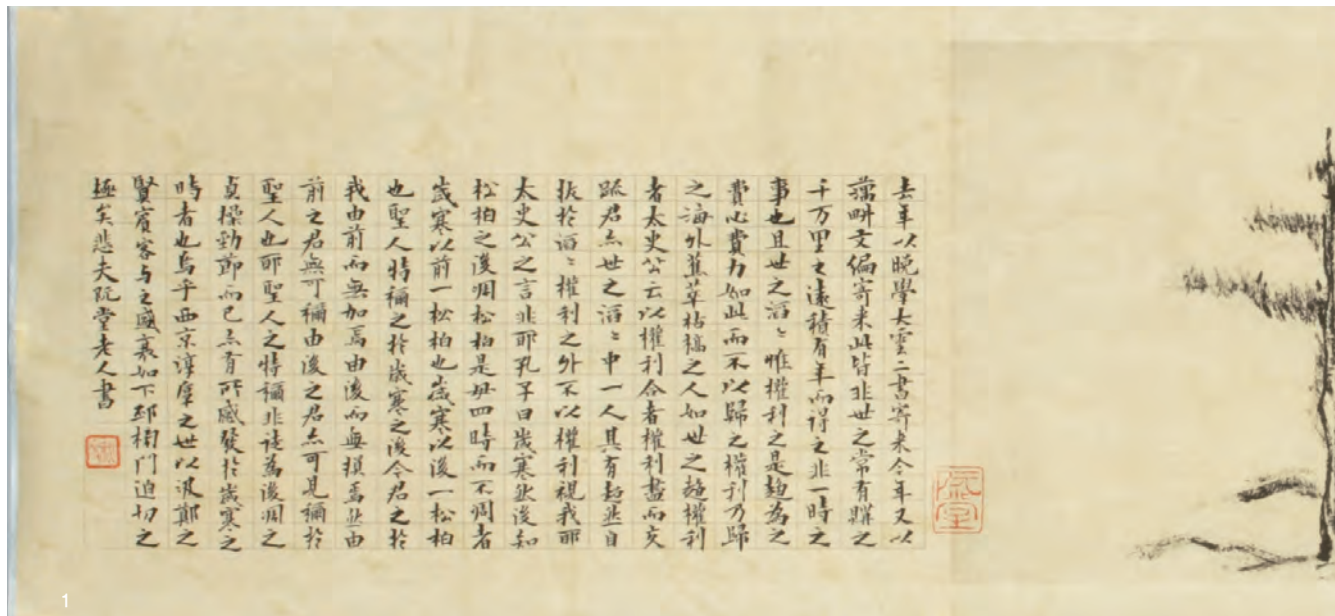 去年以晩學大雲二書寄來今年又以
藕畊文編寄來此皆非世之常有購之
千万里之遠積有年而得之非一時之
事也且世之滔〻惟權利之是趨為之
費心費力如此而不以歸之權利乃歸
之海外蕉萃枯槁之人如世之趨權利
者太史公云以權利合者權利盡而交
疏君亦世之滔〻中一人其有超然自
拔於滔〻權利之外不以權利視我耶
太史公之言非耶孔子曰歲寒然後知
松柏之後凋松柏是毋四時而不凋者
歲寒以前一松柏也歲寒以後一松柏
也聖人特稱之於歲寒之後今君之於
我由前而無加焉由後而無損焉然由
前之君無可稱由後之君亦可見稱於
聖人也耶聖人之特稱非徒為後凋之
貞操勁節而已亦有所感發於歲寒之
時者也烏乎西京淳厚之世以汲鄭之
賢賓客与之盛衰如下邳榜門迫切之
極矣悲夫阮堂老人書
阮堂
1